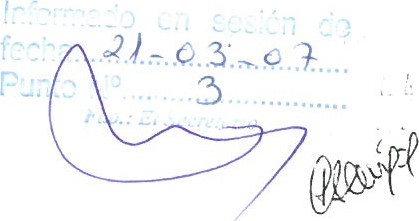 Informado en sesión de
fecha 21-03-07
Punto Nº 3
Fdo.: El Secretario